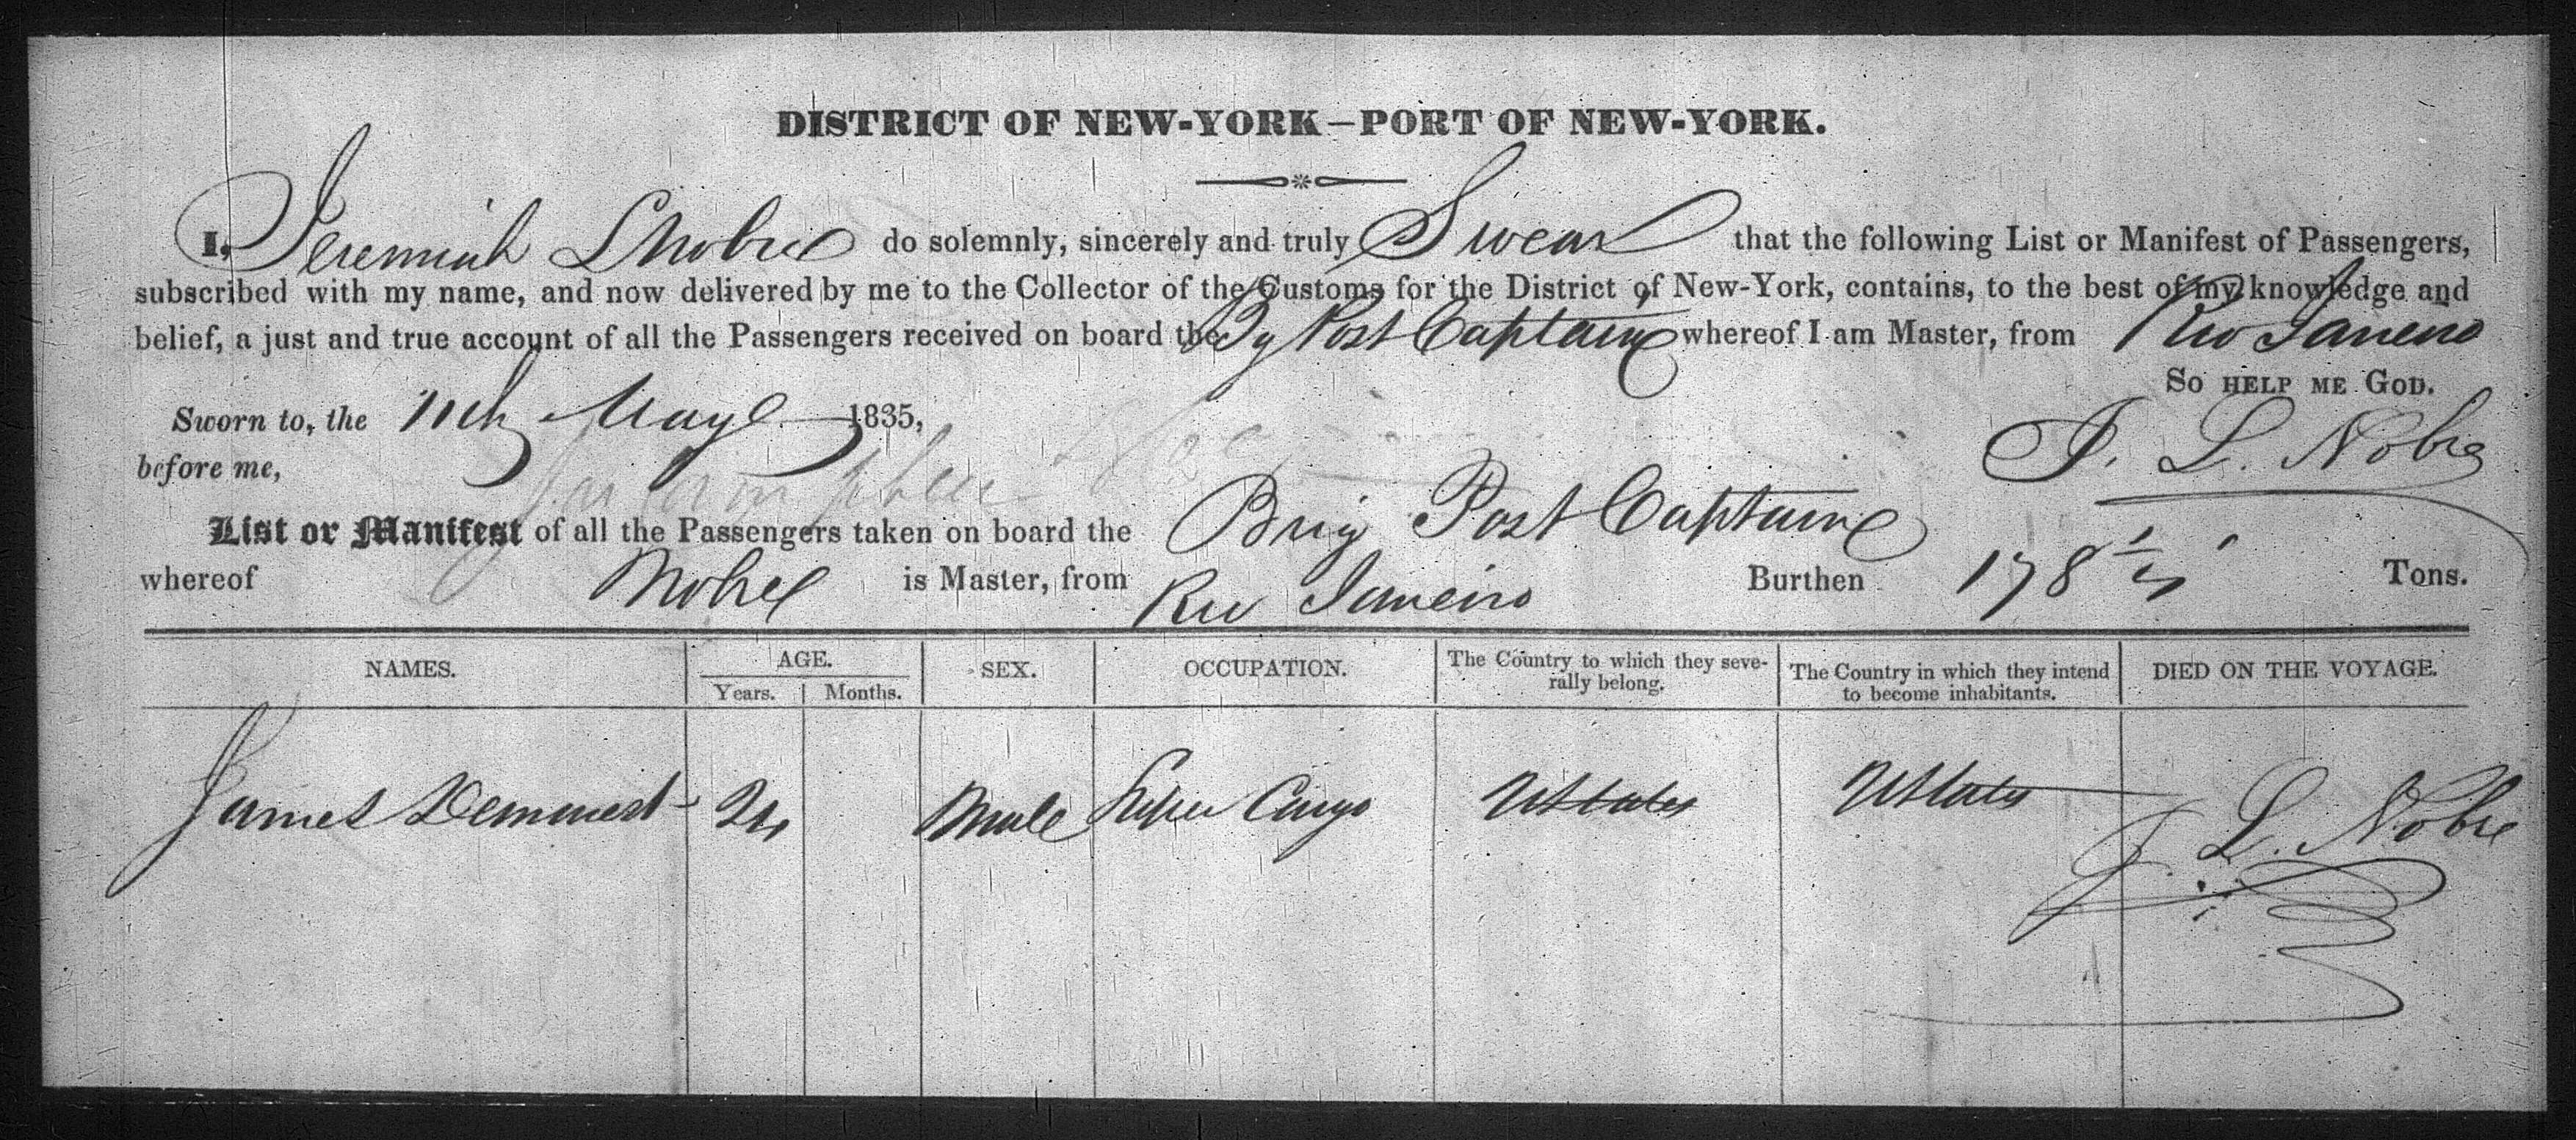 DISTRICT OF NEW-YORK—PORT OF NEW-YORK.
I, Jeremiah L Nobre do solemnly, sincerely and truly Swear that the following List or Manifest of Passengers,
subscribed with my name, and now delivered by me to the Collector of the Customs for the District of New-York, contains, to the best of my knowledge and
belief, a just and true account of all the Passengers received on board the Bg Post Captain whereof I am Master, from Rio Janeiro
So HELP ME GOD.
Sworn to, the 11th May 1835,
J. L. Nobre
before me,
List or Manifest of all the Passengers taken on board the Brig Post Captain
whereof Nobre is Master, from Rio Janeiro Burthen 178 Tons.
NAMES. AGE. SEX. OCCUPATION. The Country to which they severally belong. The Country in which they intend to become inhabitants. DIED ON THE VOYAGE.
Years. Months.
James Demmest 24 Male Super Cargo UStates UStates
J. L. Nobre